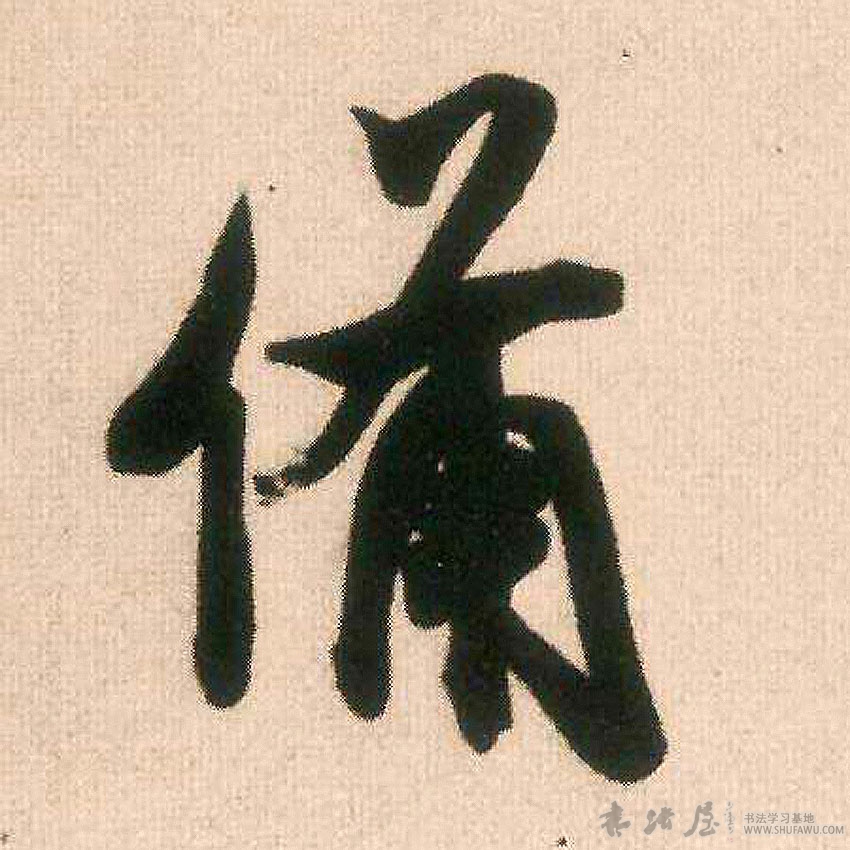 備
书法屋
书法学习基地
WWW.SHUFAWU.COM